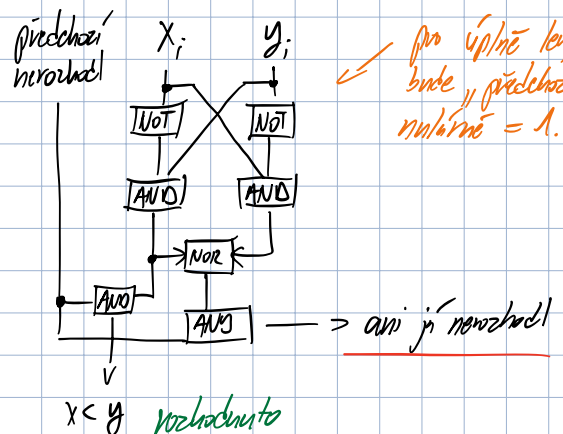 předchozí
nerozhodl
Xi
yi
pro úplně le
bude „předcho
nutně = 1.
NOT
NOT
AND
AND
NOR
AND
AND
ani já nerozhodl
x < y
rozhodnuto